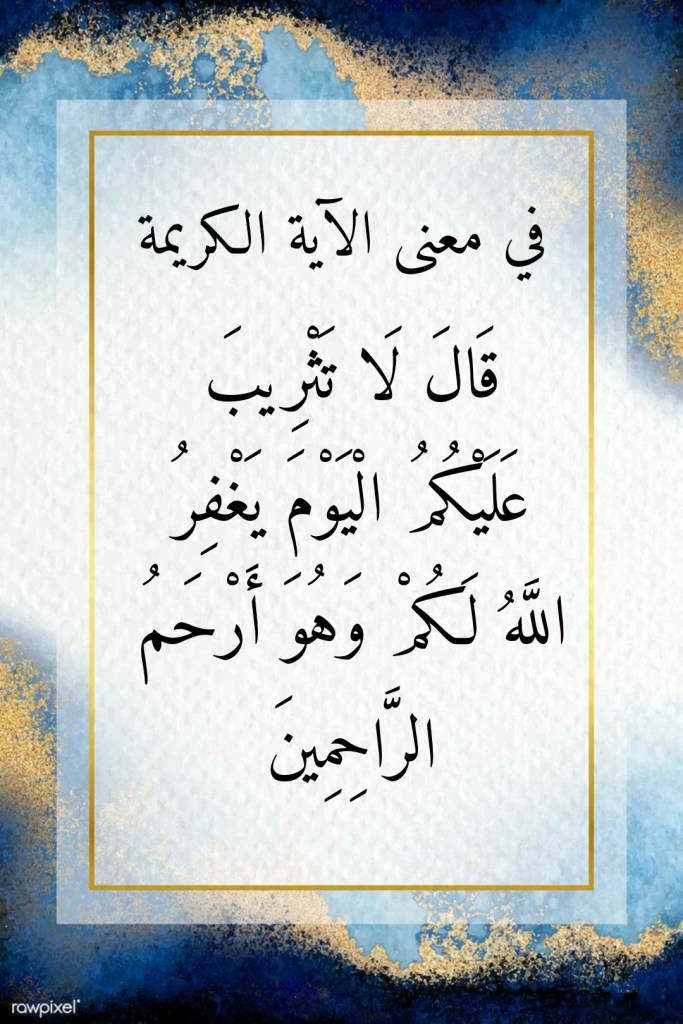 في معنى الآية الكريمة
قَالَ لَا تَثْرِيبَ
عَلَيْكُمُ الْيَوْمَ يَغْفِرُ
اللَّهُ لَكُمْ وَهُوَ أَرْحَمُ
الرَّاحِمِينَ
rawpixel